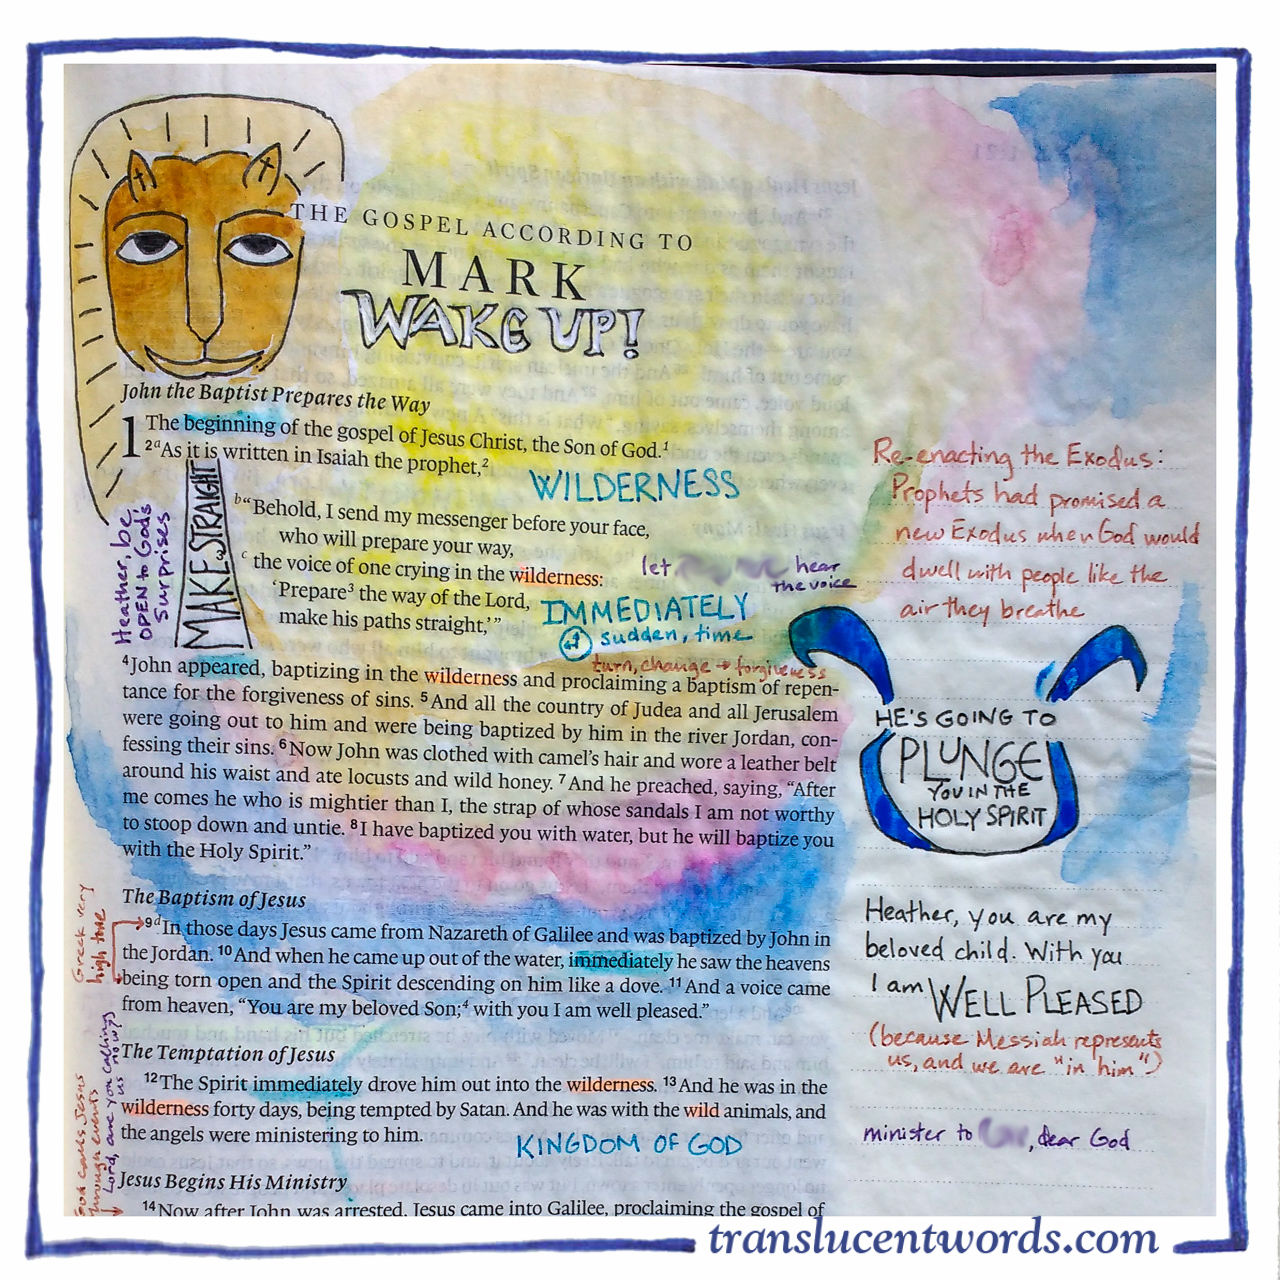 THE GOSPEL ACCORDING TO
MARK
WAKE UP!
John the Baptist Prepares the Way
1 The beginning of the gospel of Jesus Christ, the Son of God.¹
²ᵃAs it is written in Isaiah the prophet,²
WILDERNESS
ᵇ“Behold, I send my messenger before your face,
who will prepare your way,
ᶜ the voice of one crying in the wilderness:
‘Prepare³ the way of the Lord,
make his paths straight,’”
let hear
the voice
IMMEDIATELY
sudden, time
turn, change → forgiveness
MAKE STRAIGHT
Heather, be
OPEN to Gods
surprises
⁴John appeared, baptizing in the wilderness and proclaiming a baptism of repen-
tance for the forgiveness of sins. ⁵And all the country of Judea and all Jerusalem
were going out to him and were being baptized by him in the river Jordan, con-
fessing their sins. ⁶Now John was clothed with camel’s hair and wore a leather belt
around his waist and ate locusts and wild honey. ⁷And he preached, saying, “After
me comes he who is mightier than I, the strap of whose sandals I am not worthy
to stoop down and untie. ⁸I have baptized you with water, but he will baptize you
with the Holy Spirit.”
The Baptism of Jesus
⁹ᵈIn those days Jesus came from Nazareth of Galilee and was baptized by John in
the Jordan. ¹⁰And when he came up out of the water, immediately he saw the heavens
being torn open and the Spirit descending on him like a dove. ¹¹And a voice came
from heaven, “You are my beloved Son;⁴ with you I am well pleased.”
Greek very
high tone
The Temptation of Jesus
¹²The Spirit immediately drove him out into the wilderness. ¹³And he was in the
wilderness forty days, being tempted by Satan. And he was with the wild animals, and
the angels were ministering to him.
KINGDOM OF GOD
God calls Jesus
through events
Lord, are you calling
us now?
Jesus Begins His Ministry
¹⁴Now after John was arrested, Jesus came into Galilee, proclaiming the gospel of
Re-enacting the Exodus:
Prophets had promised a
new Exodus when God would
dwell with people like the
air they breathe
HE'S GOING TO
PLUNGE
YOU IN THE
HOLY SPIRIT
Heather, you are my
beloved child. With you
I am WELL PLEASED
(because Messiah represents
us, and we are "in him")
minister to , dear God
translucentwords.com